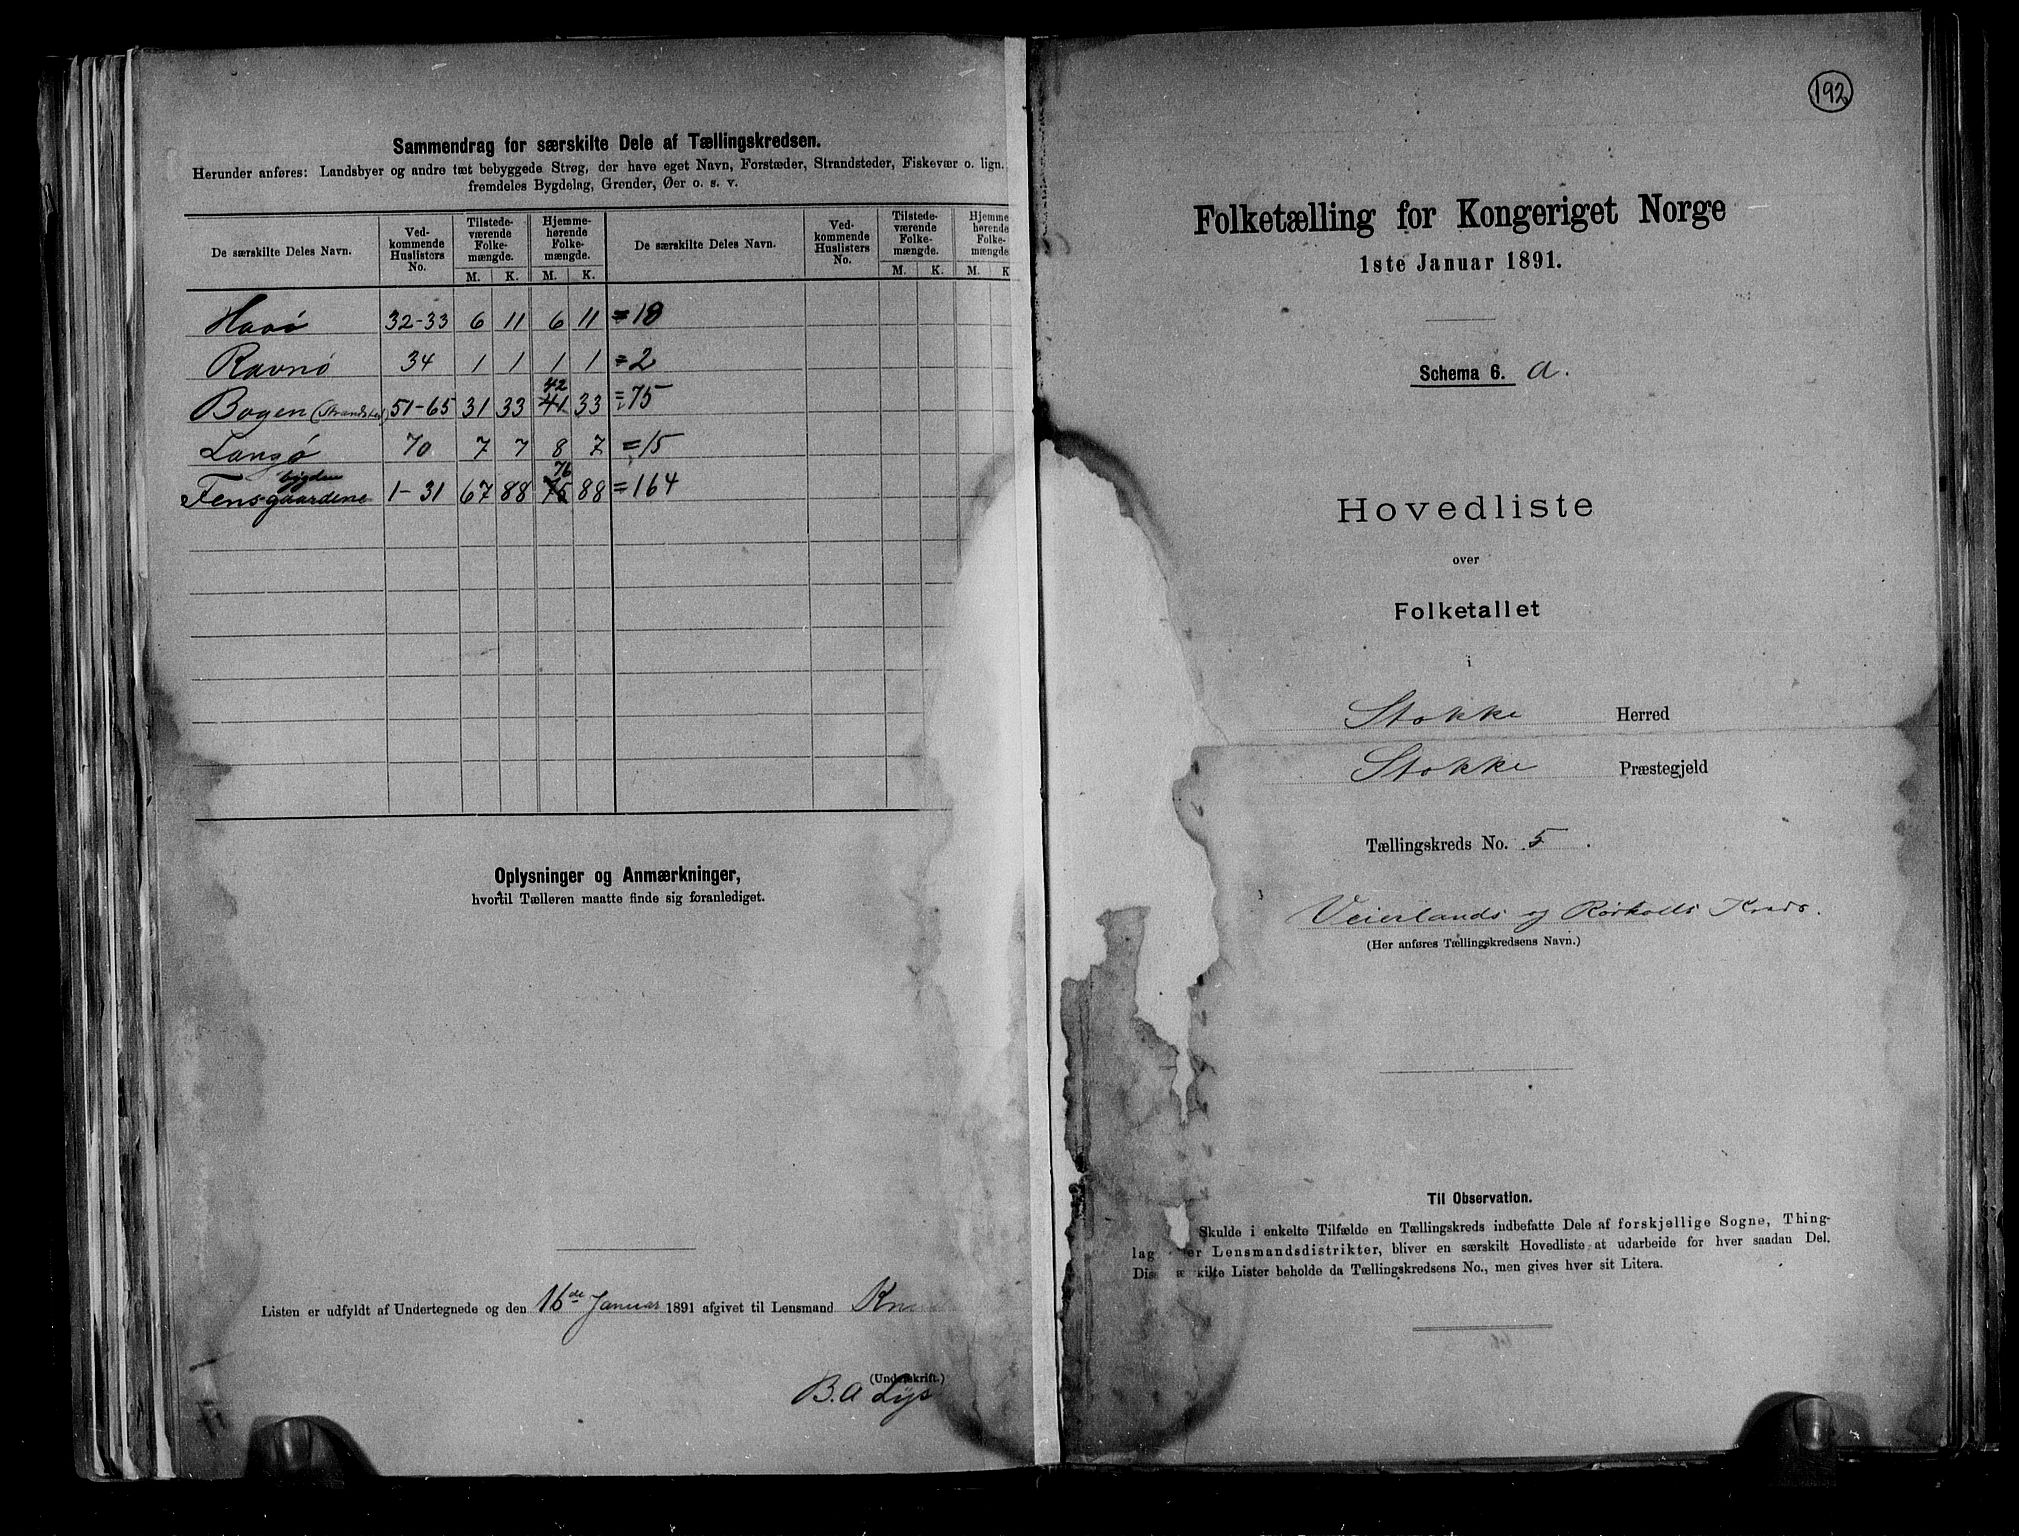 Sammendrag for særskilte Dele af Tællingskredsen.
Herunder anføres: Landsbyer og andre tæt bebyggede Strøg, der have eget Navn, Forstæder, Strandsteder, Fiskevær o. lign.
fremdeles Bygdelag, Grender, Øer o. s. v.
De særskilte Deles Navn. Ved-kommende Huslisters No. Tilstede-værende Folke-mængde. Hjemme-hørende Folke-mængde. De særskilte Deles Navn. Ved-kommende Huslisters No. Tilstede-værende Folke-mængde. Hjemme-hørende Folke-mængde.
M. K. M. K. M. K. M. K
Haaø 32-33 6 11 6 11 = 18
Ravnø 34 1 1 1 1 = 2
Bogen (Strandsted) 51-65 31 33 42 41 33 = 75
Langø 70 7 7 8 7 = 15
Fensgaardene bygden 1-31 67 88 76 75 88 = 164
Oplysninger og Anmærkninger,
hvortil Tælleren maatte finde sig foranlediget.
Listen er udfyldt af Undertegnede og den 16de Januar 1891 afgivet til Lensmand
(Underskrift.)
B. A Lys
192
Folketælling for Kongeriget Norge
1ste Januar 1891.
Schema 6. a.
Hovedliste
over
Folketallet
i
Stokke Herred
Stokke Præstegjeld
Tællingskreds No. 5.
Veierlands og Rørkolls Kreds.
(Her anføres Tællingskredsens Navn.)
Til Observation.
Skulde i enkelte Tilfælde en Tællingskreds indbefatte Dele af forskjellige Sogne, Thing-
lag er Lensmandsdistrikter, bliver en særskilt Hovedliste at udarbeide for hver saadan Del.
Dis kilte Lister beholde da Tællingskredsens No., men gives hver sit Litera.